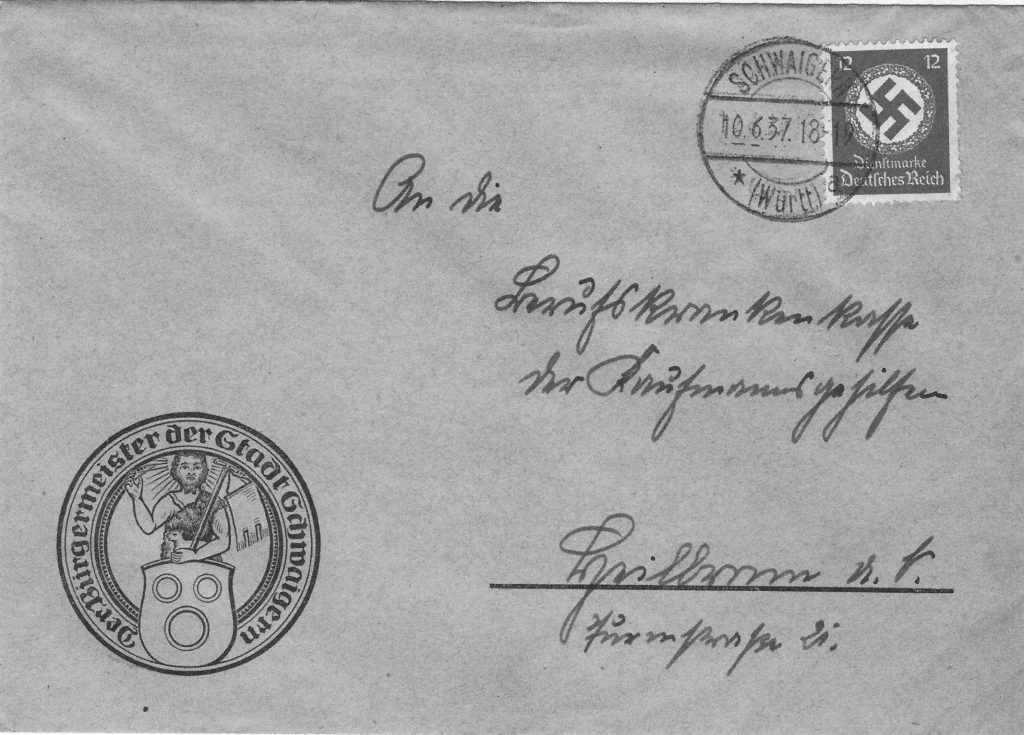 SCHWAIGERN
10.6.37. 18-19
* (Württ) a
12 12
Dienstmarke
Deutsches Reich
An die
Berufskrankenkasse
der Kaufmannsgehilfen
Heilbronn a. N.
Turmstraße
Der Bürgermeister der Stadt Schwaigern